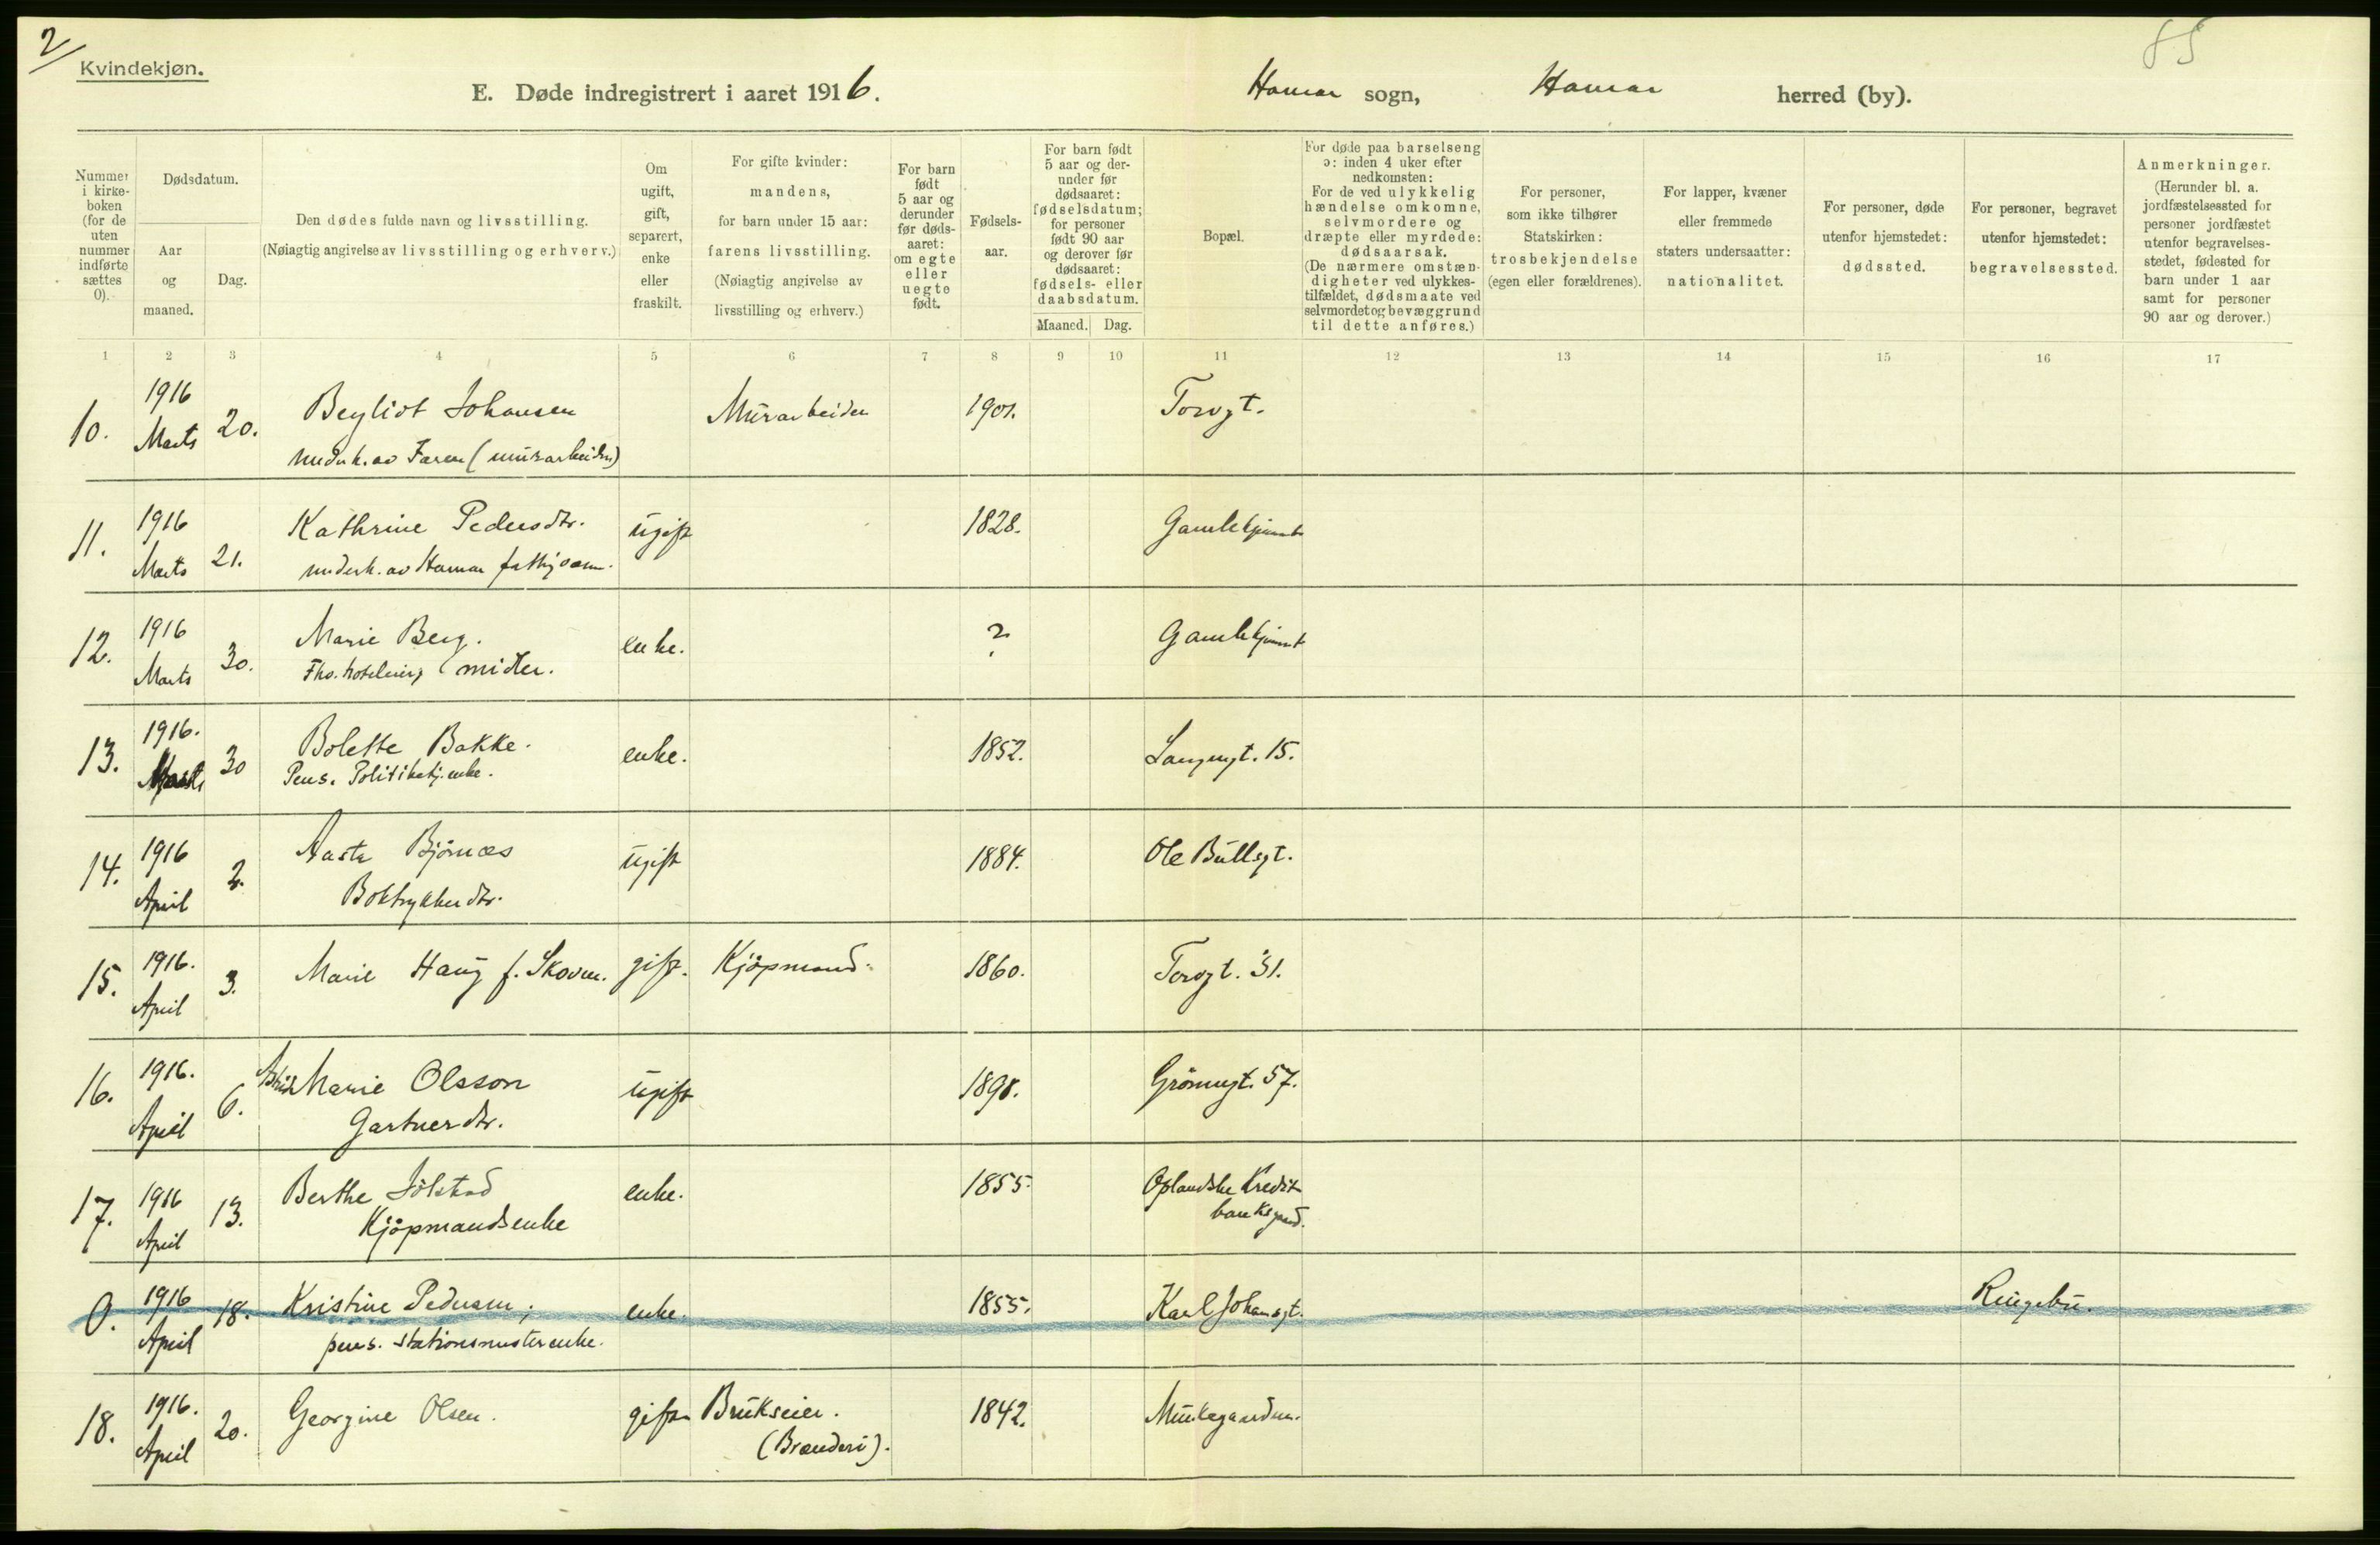 2/
85
Kvindekjøn.
E. Døde indregistrert i aaret 1916.
Hamar sogn, Hamar herred (by).
Nummer i kirkeboken (for de uten nummer indførte sættes 0).
Dødsdatum.
Aar og maaned.
Dag.
Den dødes fulde navn og livsstilling.
(Nøiagtig angivelse av livsstilling og erhverv.)
Om ugift, gift, separert, enke eller fraskilt.
For gifte kvinder: mandens, for barn under 15 aar: farens livsstilling.
(Nøiagtig angivelse av livsstilling og erhverv.)
For barn født 5 aar og derunder før dødsaaret: om egte eller uegte født.
Fødselsaar.
For barn født 5 aar og derunder før dødsaaret: fødselsdatum; for personer født 90 aar og derover før dødsaaret: fødsels- eller daabsdatum.
Maaned. Dag.
Bopæl.
For døde paa barselseng ɔ: inden 4 uker efter nedkomsten:
For de ved ulykkelig hændelse omkomne, selvmordere og dræpte eller myrdede: dødsaarsak.
(De nærmere omstændigheter ved ulykkestilfældet, dødsmaate ved selvmordet og bevæggrund til dette anføres.)
For personer, som ikke tilhører Statskirken: trosbekjendelse (egen eller forældrenes).
For lapper, kvæner eller fremmede staters undersaatter: nationalitet.
For personer, døde utenfor hjemstedet: dødssted.
For personer, begravet utenfor hjemstedet: begravelsessted.
Anmerkninger.
(Herunder bl. a. jordfæstelsessted for personer jordfæstet utenfor begravelsesstedet, fødested for barn under 1 aar samt for personer 90 aar og derover.)
1 2 3 4 5 6 7 8 9 10 11 12 13 14 15 16 17
10. 1916 Marts 20. Bergliot Johansen Murarbeider 1901. Torvgt.
underh. av Faren (murarbeider)
11. 1916 Marts 21. Kathrine Pedersdtr. ugift 1828. Gamlehjemmet
underh. av Hamar
12. 1916 Marts 30. Marie Berg. enke. ? Gamlehjemmet
midler.
13. 1916. Marts 30 Bolette Bakke. enke. 1852. Langgt. 15.
Pens. Politibetj. enke.
14. 1916 April 2. Aasta Bjørnæs ugift 1884. Ole Bullsgt.
Boktrykkerdtr.
15. 1916. April 3. Marie Haug f. Skoven. gift. Kjøpmand. 1860. Torvgt. 31.
16. 1916. April 6. Marie Olsson ugift 1898. Grønnegt. 57.
Gartnerdtr.
17. 1916 April 13. Berthe Jølstad enke. 1855. Oplandske Kredit
Kjøpmandsenke bankgaard.
0. 1916 April 18. Kristine Pedersen; enke. 1855. Karl Johansgt. Ringebu.
pens. stationsmesterenke.
18. 1916. April 20. Georgine Olsen. gift Brukseier. 1842.
(Brænderi).